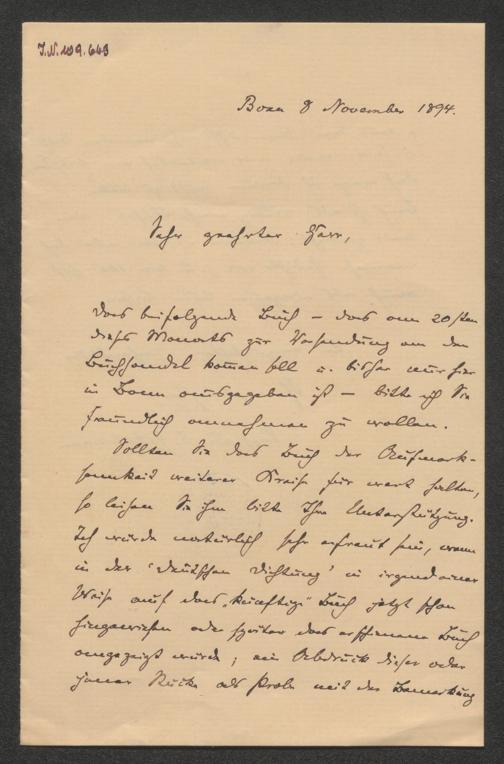 J.N. 109.663
Bonn 8 November 1894.
Sehr geehrter Herr,
Das beifolgende Buch – das am 20sten
dieses Monats zur Versendung an den
Buchhandel kommen soll u. bisher nur hier
in Bonn ausgegeben ist – bitte ich Sie
freundlich annehmen zu wollen.
Sollten Sie das Buch der Aufmerk-
samkeit weiterer Kreise für wert halten,
so leihen Sie ihm bitte Ihre Unterstützung.
Ich würde natürlich sehr erfreut sein, wenn
in der 'Deutschen Dichtung' in irgend einer
Weise auf das „künftige" Buch jetzt schon
hingewiesen oder später das erschienene Buch
angezeigt würde; ein Abdruck dieser oder
jener Stücke als Probe mit der Bemerkung